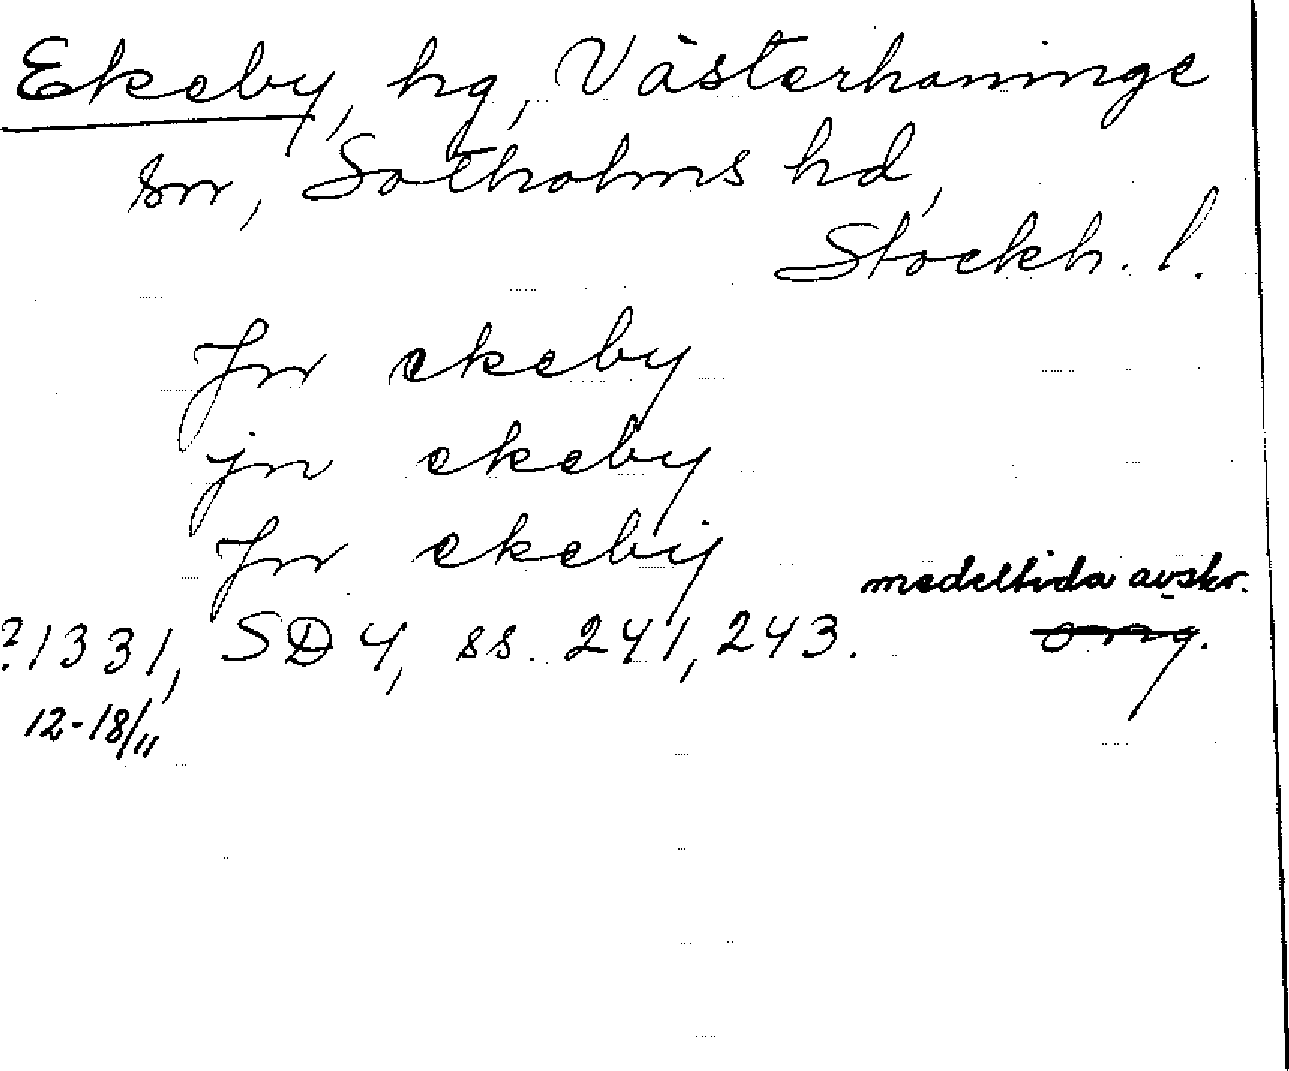 Ekeby, hg, Västerhaninge
sn, Sotholms hd,
Stockh. l.
Jn ekeby
jn ekeby
Jn ekebÿ
medeltida avskr.
?1331, SD 4, ss. 241, 243. orig.
12-18/11